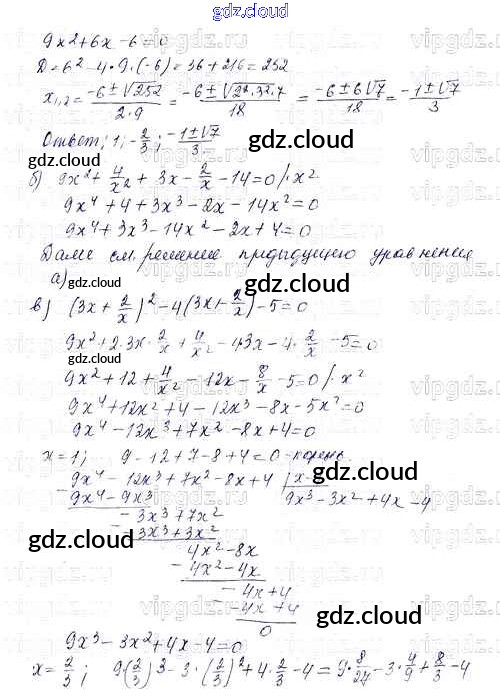 gdz.cloud
9x²+6x-6=0
D=6²-4·9·(-6)=36+216=252
x₁,₂=(-6±√252)/(2·9)=(-6±√(2²·3²·7))/18=(-6±6√7)/18=(-1±√7)/3
Ответ: 1; -2/3; (-1±√7)/3.
б) 9x²+4/x²+3x-2/x-14=0 /·x²
9x⁴+4+3x³-2x-14x²=0
9x⁴+3x³-14x²-2x+4=0
Далее см. решение предыдущего уравнения
а)
в) (3x+2/x)²-4(3x+2/x)-5=0
9x²+2·3x·2/x+4/x²-4·3x-4·2/x-5=0
9x²+12+4/x²-12x-8/x-5=0 /·x²
9x⁴+12x²+4-12x³-8x-5x²=0
9x⁴-12x³+7x²-8x+4=0
x=1; 9-12+7-8+4=0-корень.
9x⁴-12x³+7x²-8x+4
9x⁴-9x³ 9x³-3x²+4x-4
-3x³+7x²
-3x³+3x²
4x²-8x
-4x²-4x
-4x+4
-4x+4
0
9x³-3x²+4x-4=0
x=2/3; 9(2/3)³-3·(2/3)²+4·2/3-4=9·8/27-3·4/9+8/3-4